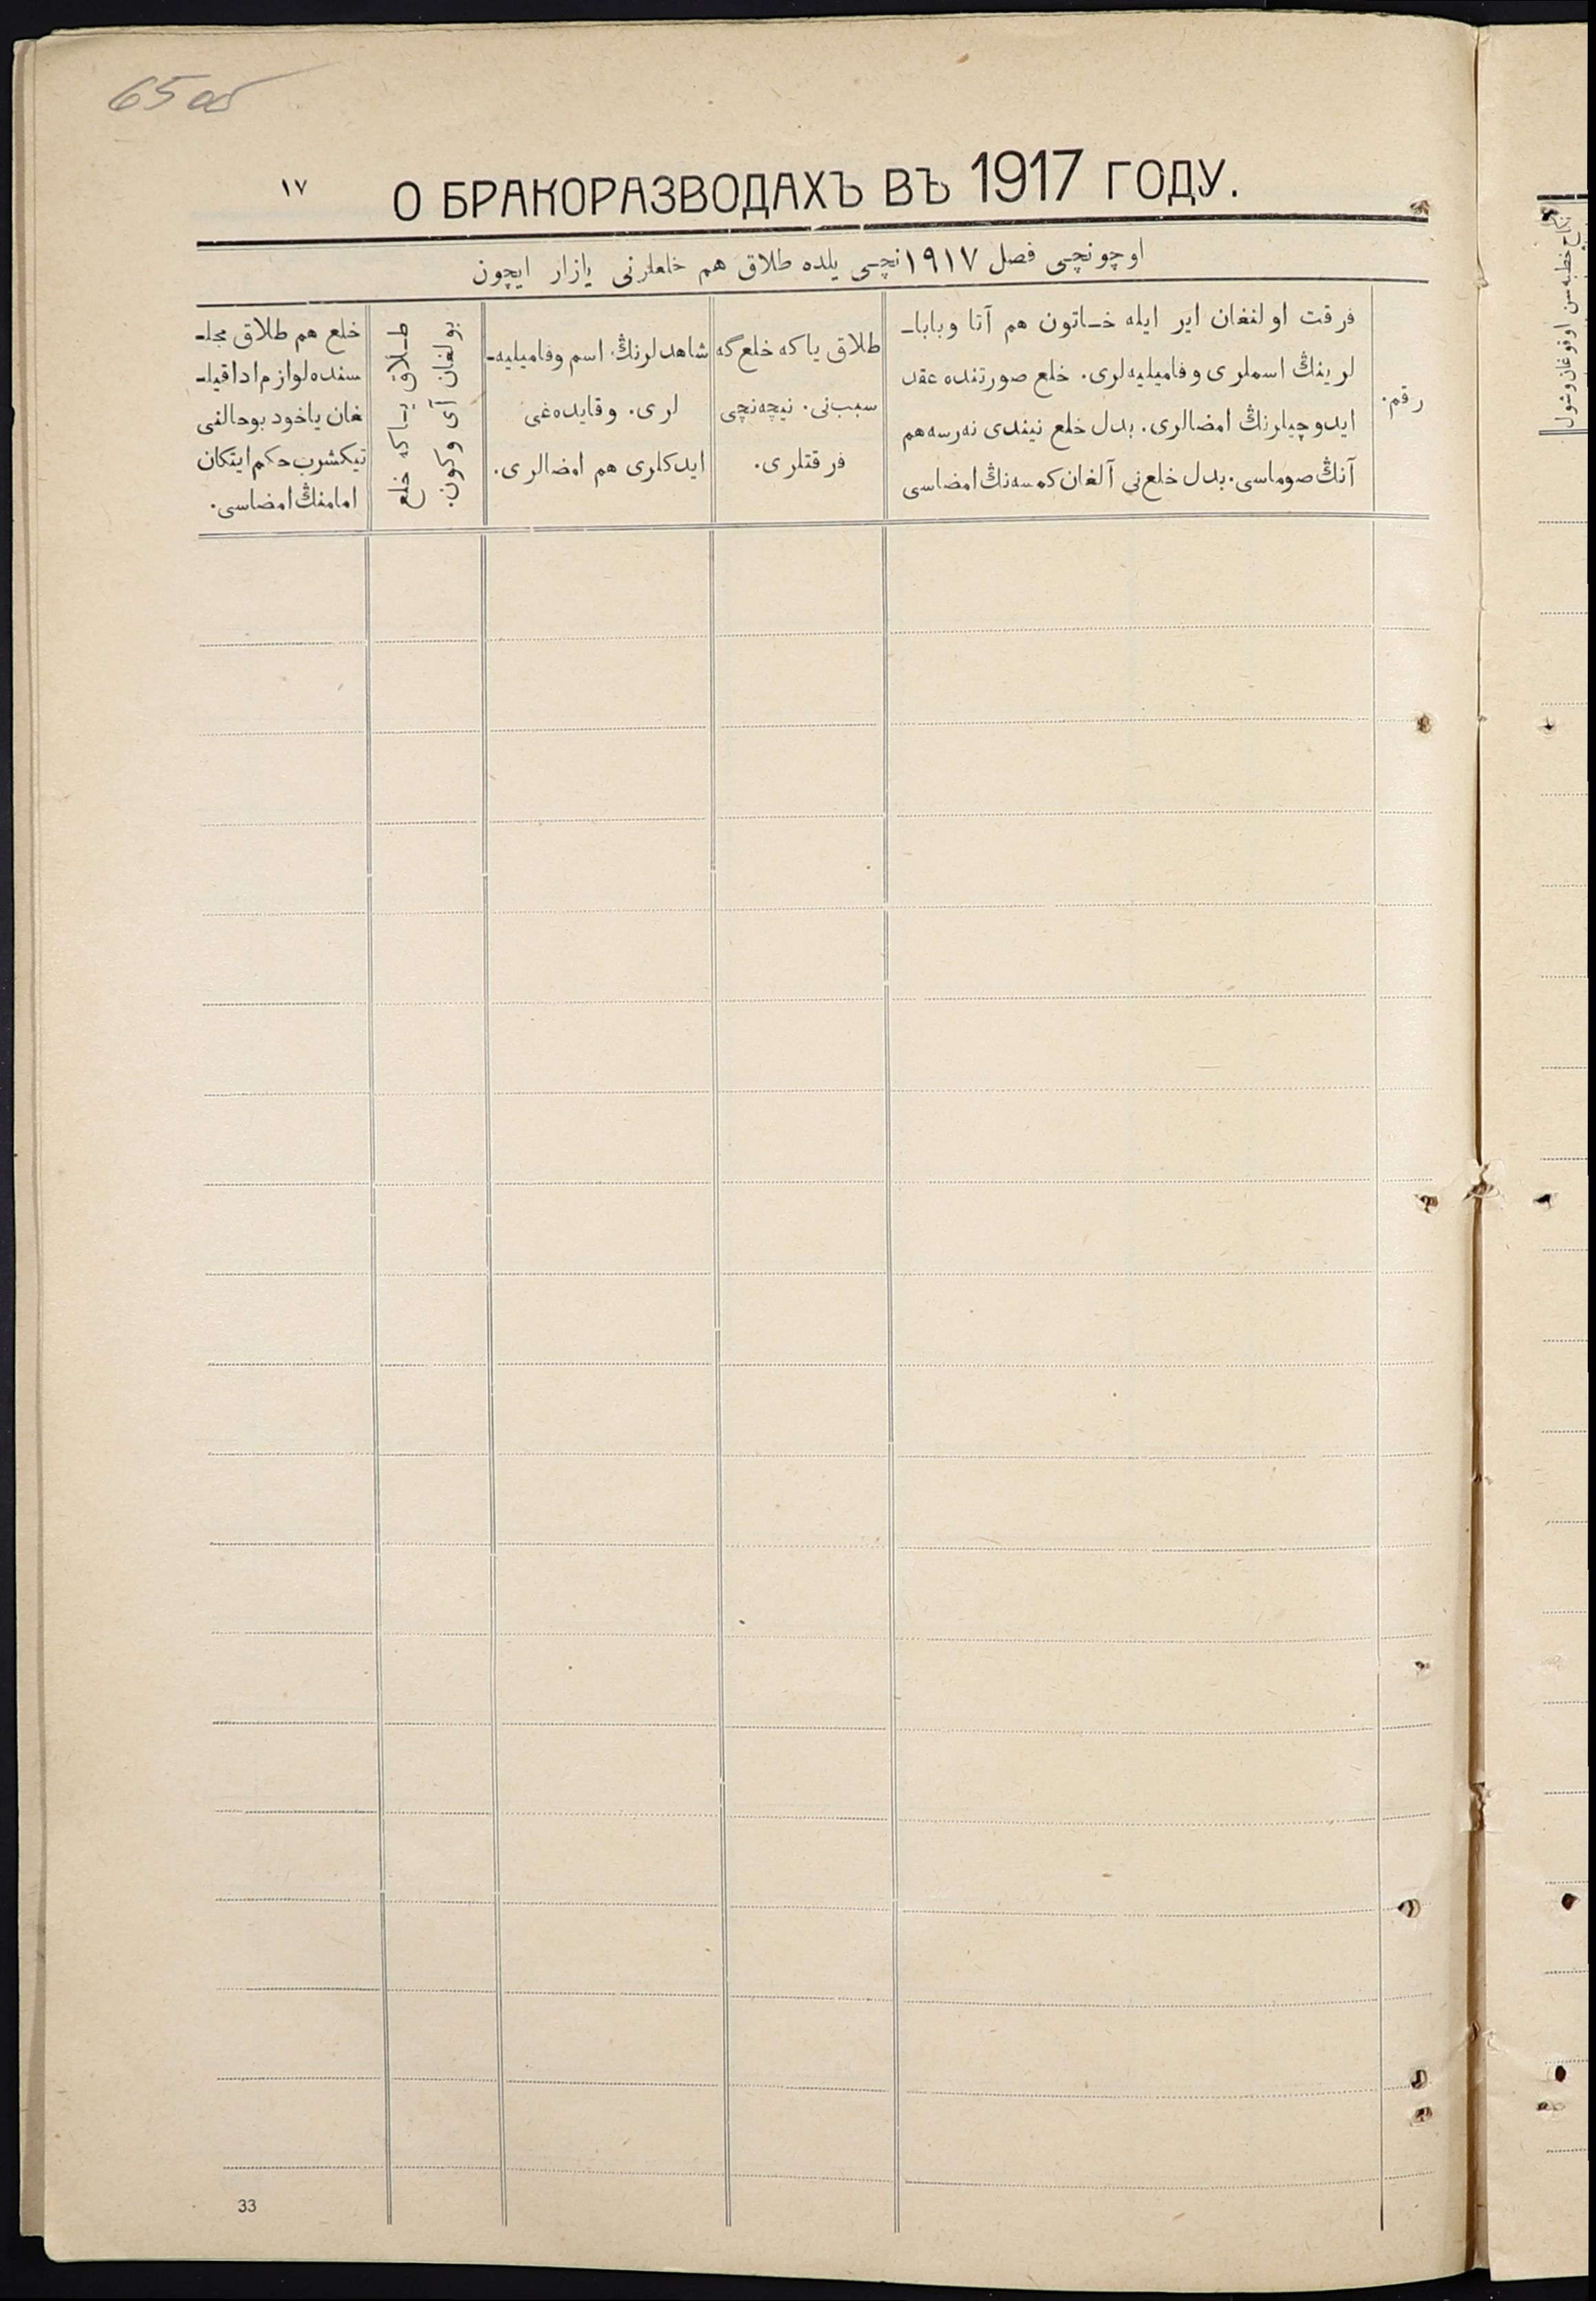 65 об
١٧
О БРАКОРАЗВОДАХЪ ВЪ 1917 ГОДУ.
اوچونچی فصل ١٩١٧ نچی یلده طلاق هم خلعلرنی یازار ایچون
رقم.
فرقت اولنغان ایر ایله خاتون هم آتا وبابا-
لرینڭ اسملری وفامیلیه‌لری. خلع صورتنده عقد
ایدوچیلرنڭ امضالری. بدل خلع نیندی نه‌رسه هم
آنڭ صوماسی. بدل خلع‌نی آلغان کمسه‌نڭ امضاسی
طلاق یاکه خلع‌گه
سبب‌نی. نیچه‌نچی
فرقتلری.
شاهدلرنڭ اسم وفامیلیه-
لری. وقایده‌غی
ایدکلری هم امضالری.
طلاق یاکه خلع
بولغان آی وکون.
خلع هم طلاق مجلـ
سنده‌لوازم اداقیلـ
غان یاخود بوحالنی
تیکشرب حکم ایتکان
امامنڭ امضاسی.
33
نکاح خطبه‌سن اوقوغان وشول